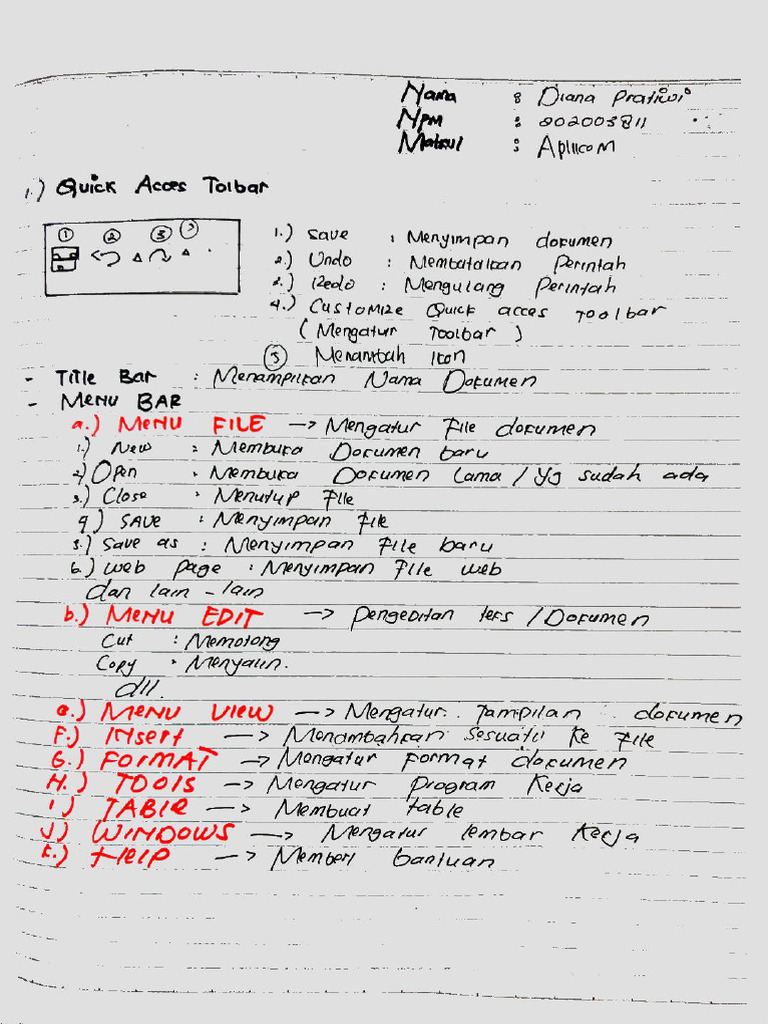 Nama : Diana Pratiwi
NPM : 202003811
Matkul : Aplikom
1.) Quick Acces Tolbar
1 2 3
1.) Save : Menyimpan dokumen
2.) Undo : Membatalkan Perintah
2.) Redo : Mengulang Perintah
4.) Customize Quick acces Toolbar
(Mengatur Toolbar)
5 Menambah Ikon
- Title Bar : Menampilkan Nama Dokumen
- Menu BAR
a.) Menu FILE → Mengatur File dokumen
1.) New : Membuka Dokumen baru
2) Open : Membuka Dokumen Lama / Yg sudah ada
3.) Close : Menutup File
4) SAVE : Menyimpan File
5.) Save as : Menyimpan File baru
6.) Web page : Menyimpan File web
dan lain - lain
b.) Menu EDIT → Pengeditan teks / Dokumen
Cut : Memotong
Copy : Menyalin.
dll.
e.) Menu View → Mengatur Tampilan dokumen
F.) Insert → Menambahkan Sesuatu Ke File
G.) FORMAT → Mengatur Format dokumen
H.) TOOlS → Mengatur Program Kerja
I) TABLE → Membuat table
J) WINDOWS → Mengatur lembar Kerja
K.) Help → Memberi bantuan